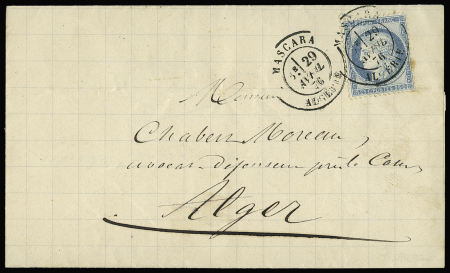 MASCARA
29
AVRIL
76
ALGERIE
MASCARA
29
AVRIL
76
ALGERIE
Monsieur
Chabert Moreau,
avocat-défenseur près la Cour
Alger